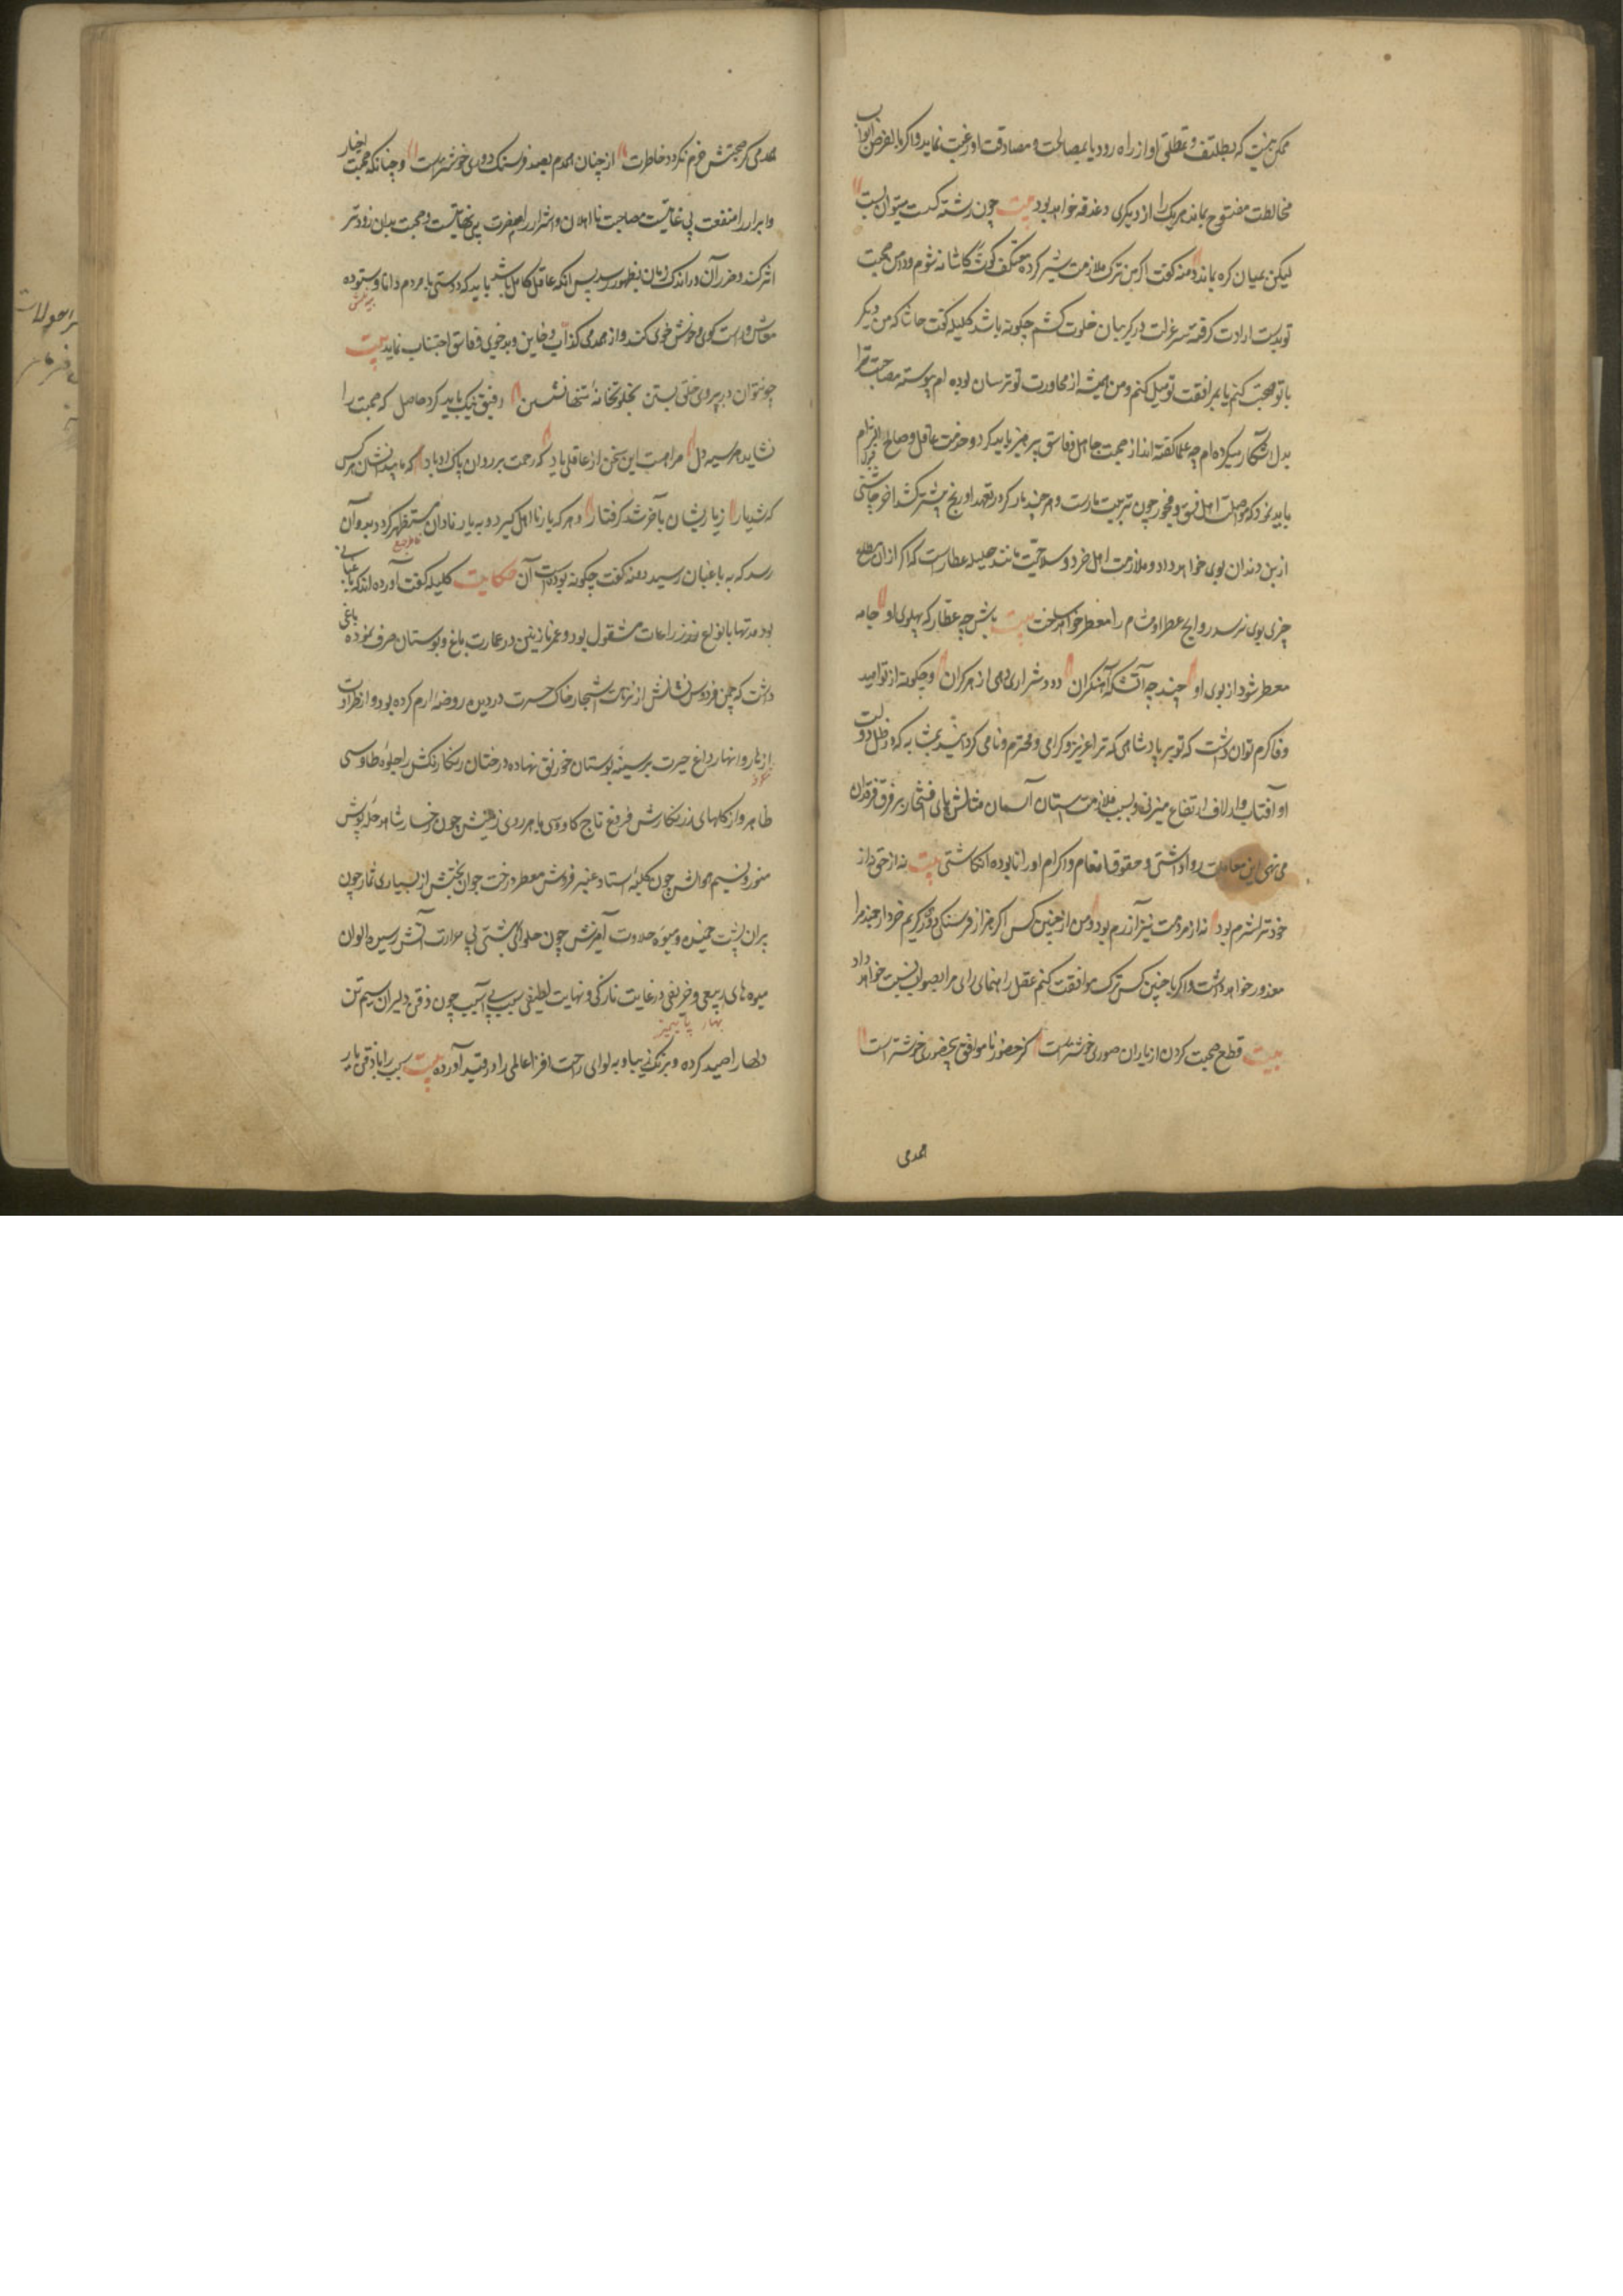 ممکن نیست که بتلطف و تملقی او از راه رود یا بمصالحت و مصادقت او رغبت نماید و اگر بالفرض ابواب
مخالطت مفتوح بماند هر یک را از دیگری دغدغه خواهد بود بیت چون رشته گسست میتوان بست
لیکن بمیان گره بماند دمنه گفت اگر من ترک ملازمت شیر کرده معتکف گوشه کاشانه شوم و دامن صحبت
تو بدست ارادت گرفته سر عزلت در گریبان خلوت کشم چگونه باشد کلیله گفت حاشا که من دیگر
با تو صحبت کنم یا بمرافقت تو میل کنم و من همیشه از مجاورت تو ترسان بوده ام پیوسته مصاحبت ترا
بدل انکار میکرده ام چه علما گفته اند از صحبت جاهل و فاسق پرهیز باید کرد و خدمت عاقل و صالح التزام
باید نمود که مواصلت اهل فسق و فجور چون تربیت مارست و هر چند مارگیر در تعهد او رنج بیشتر کشد آخر چاشنی
از بن دندان بوی خواهد داد و ملازمت اهل خرد و صلاحیت مانند طبله عطارست که اگر از آن متاع
چیزی بوی نرسد روایح عطر او مشام را معطر خواهد ساخت بیت باش چو عطار که پهلوی او جامه
معطر شود از بوی او چند چو آتشکه آهنگران دود و شراری دهی از هر کران و چگونه از تو امید
وفا و کرم توان داشت که تو بر پادشاهی که ترا عزیز و گرامی و محترم و نامی گردانید بمثابه که در ظل دولت
او آفتاب وار لاف ارتفاع میزنی و بسبب ملازمت آستان آسمان مثالش پای افتخار بر فرق فرقدان
می نهی این معاملت روا داشتی و حقوق انعام و اکرام او را نابوده انگاشتی بیت نه از حق نه از
خود ترا شرم بود نه از مردمت نیز آزرم بود و من از چنین کس اگر هزار فرسنگ دوری گزینم خرد ارجمند مرا
معذور خواهد داشت و اگر با چنین کس ترک موافقت کنم عقل راهنمای رای مرا بصواب نسبت خواهد داد
بیت قطع صحبت کردن از یاران صوری خوشترست کز حضور ناموافق بیحضوری خوشتر است
همدمی
همدمی کز صحبتش خرم نگردد خاطرت از چنان همدم بصد فرسنگ دوری خوشترست و چنانکه صحبت اخیار
و ابرار را منفعت بی غایتست مصاحبت نااهلان و اشرار را هم مضرت بی نهایتست و صحبت بدان زودتر
اثر کند و ضرر آن در اندک زمان بظهور رسد پس آنکه عاقل کامل باشد باید که دوستی با مردم دانا و ستوده
معاش و راست گوی و خوش خوی کند و از همدمی کذاب و خاین و بدخوی و فاسق اجتناب نماید بیت
چو نتوان در بروی خلق بستن بخلوتخانه تنها نشستن رفیق نیک باید کرد حاصل که صحبت را
نشاید هر سیه دل مرا هست این سخن از عاقلی یاد که رحمت بر روان پاک او باد که با بیدانشان هر کس
که شد یار ز یاریشان بآخر شد گرفتار و هر که یار نااهل گیرد و به یار نادان مستظهر گردد بدو آن
رسد که به باغبان رسید دمنه گفت چگونه بوده است آن حکایت کلیله گفت آورده اند که باغبانی
بود مدتها بانواع زراعات مشغول بود و عمر نازنین در عمارت باغ و بوستان صرف نموده باغی
داشت که چمن فردوس نشانش از نزهت اشجار خاک حسرت در دیده روضه ارم کرده بود و از طراوت
ازهار و انهار داغ حیرت بر سینه بوستان خورنق نهاده درختان رنگارنگش را جلوه طاوسی
ظاهر و از گلهای زرنگارش فروغ تاج کاوسی باهر روی زمینش چون رخسار شاهد حله پوش
منور و نسیم هوایش چون کلبه استاد عنبر فروش معطر درخت جوان بختش از بسیاری ثمار چون
پیران پشت خمیده و میوه حلاوت آمیزش چون حلوای بهشتی بی حرارت آتش رسیده الوان
میوه های ربیعی و خریفی در غایت تازگی و نهایت لطیفی سیب بی آسیب چون ذقن دلبران سیم تن
بهار پاییز
دلها را صید کرده و برنگ زیبا و بوی راحت افزا عالمی را در قید آورده بیت سیب را با ذقن یار